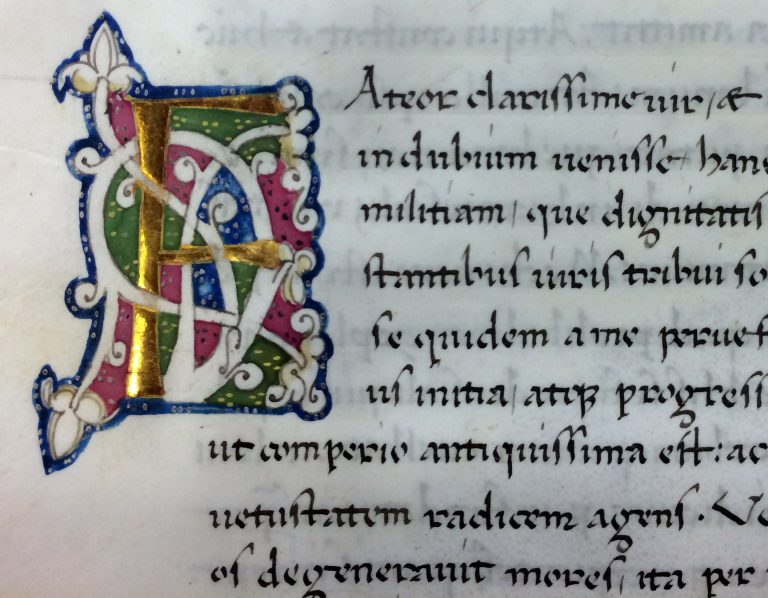 FAteor clarissime uir, &
in dubium uenisse, hanc
militiam, que dignitatis
stantibus uiris tribui so
se quidem a me peruef
us initia, atq; progress
ut comperio antiquissima est: ac
uetustatem radicem agens. Ve
os degenerauit mores, ita per